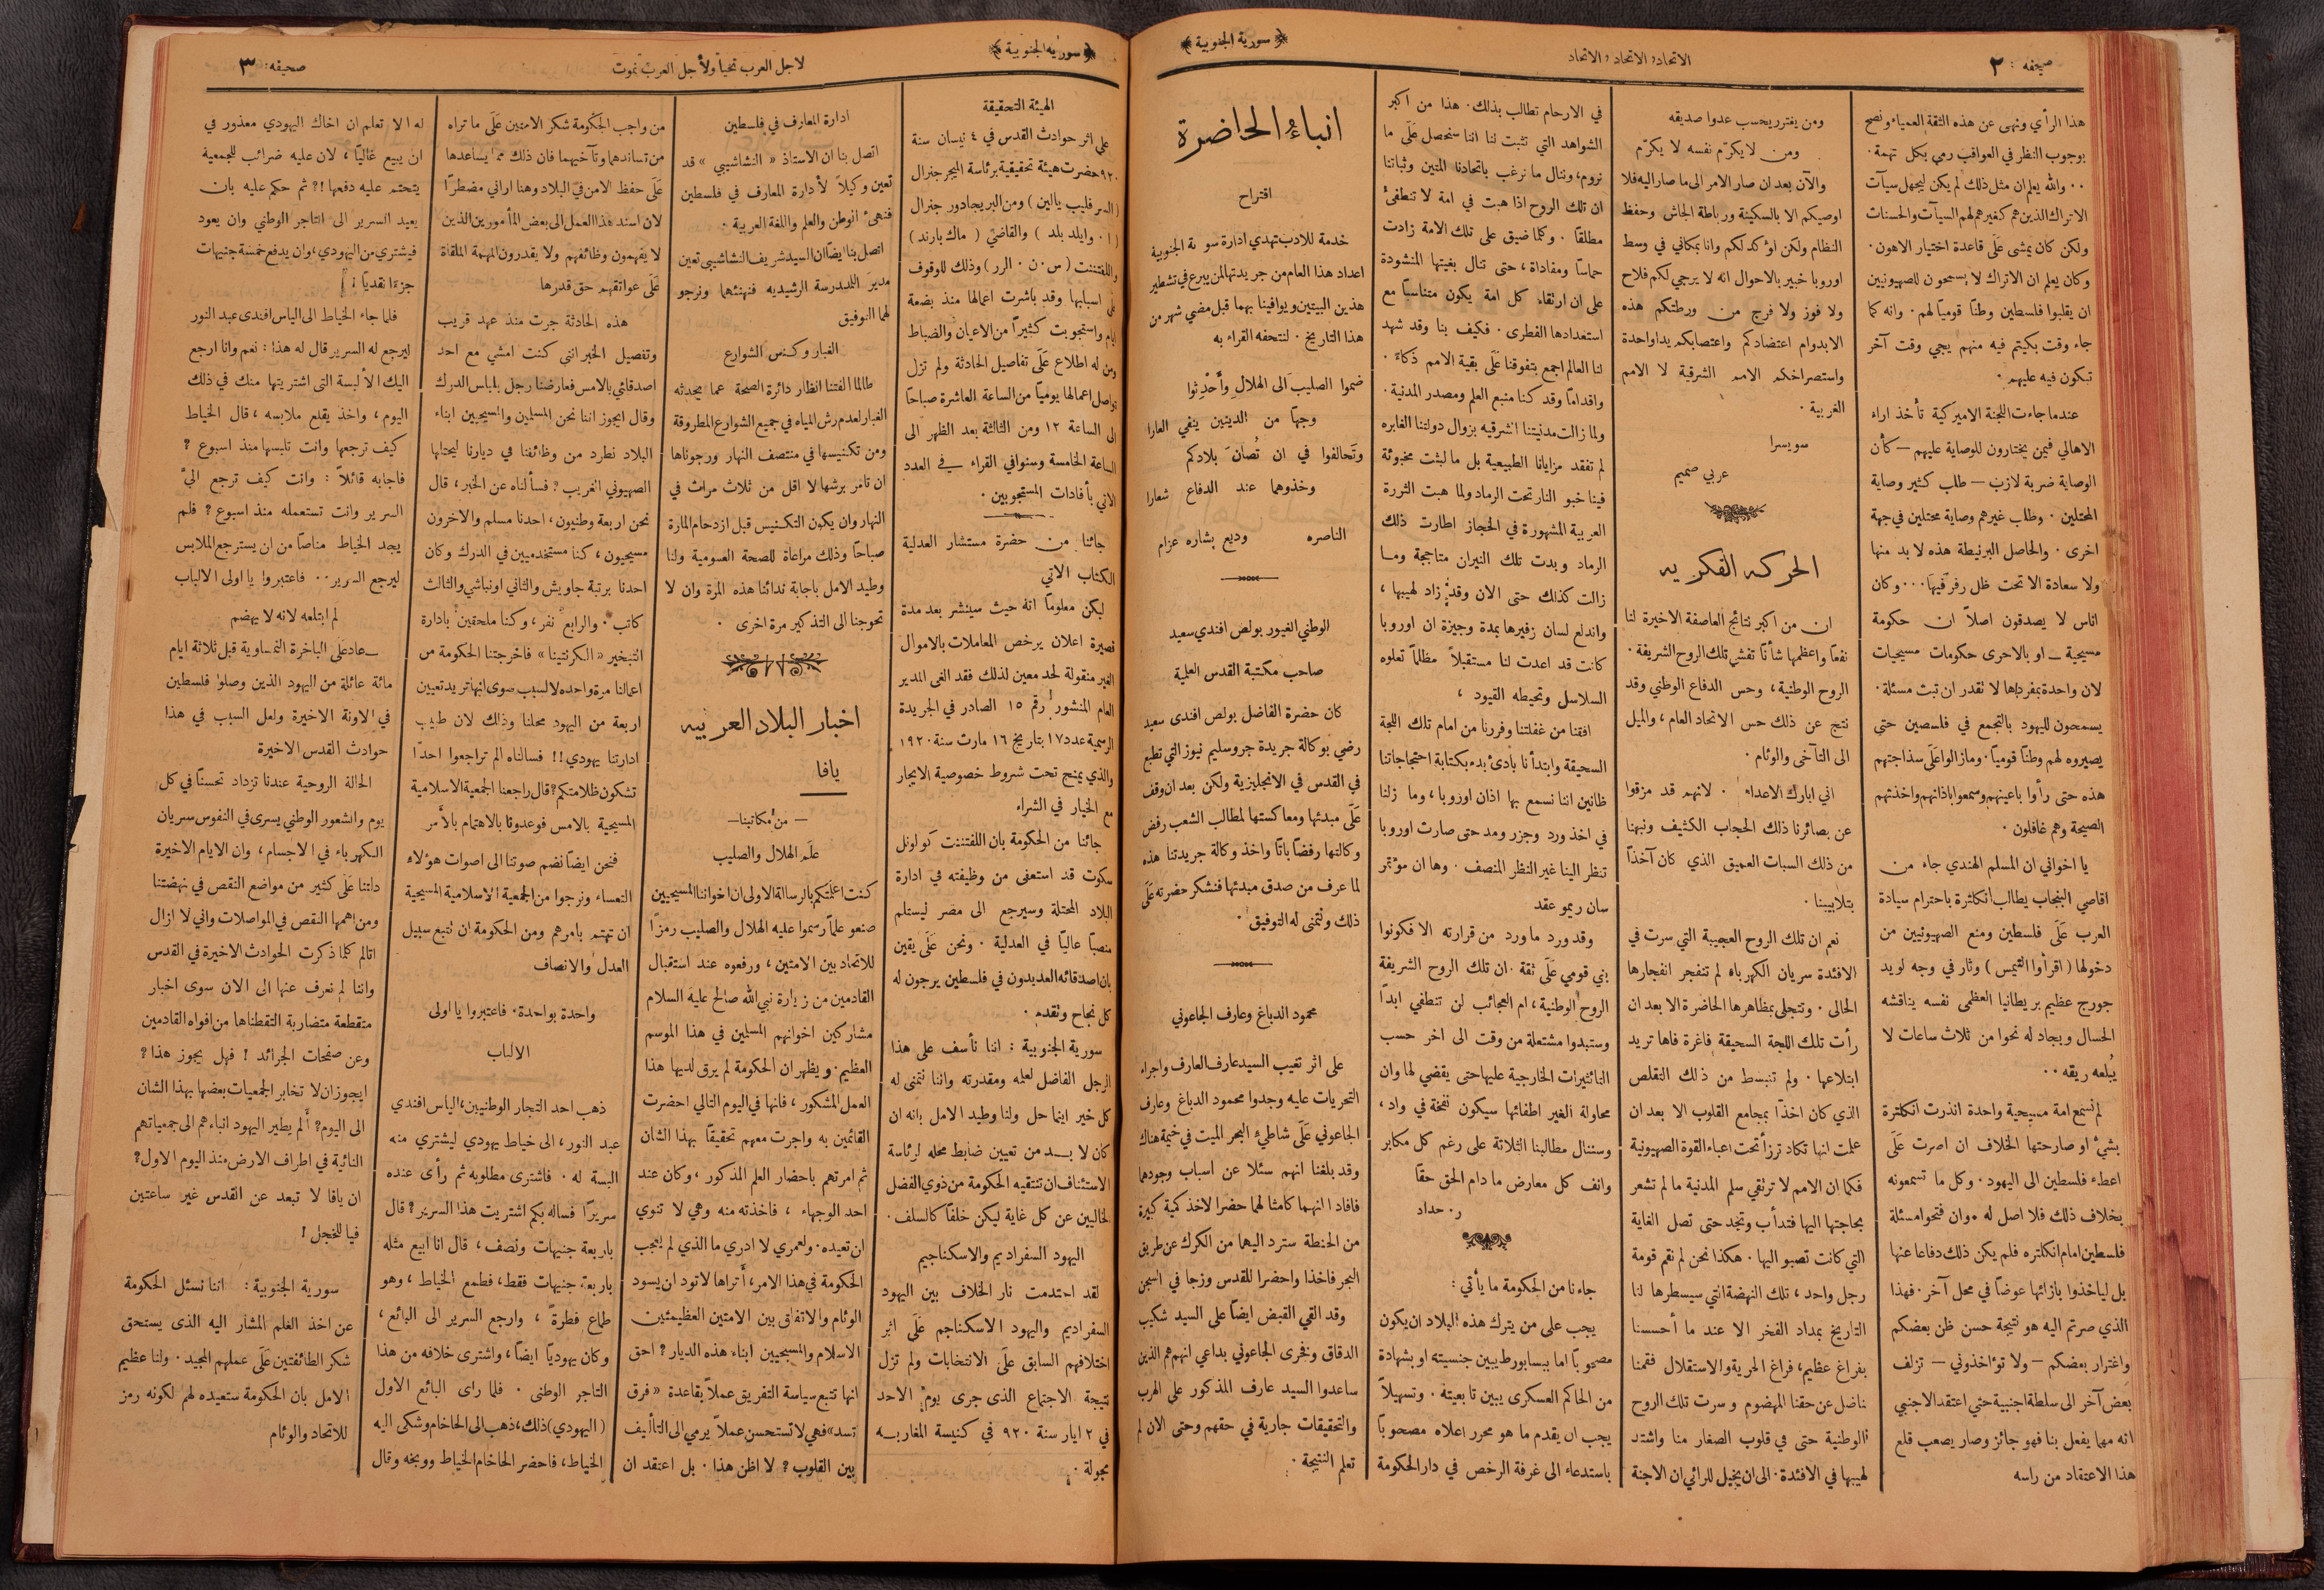 صحيفه : ٢
الاتحاد، الاتحاد، الاتحاد
﴿ سورية الجنوبية ﴾
هذا الرأي ونهى عن هذه الثقة العمياء ونصح
بوجوب النظر في العواقب رمي بكل تهمة .
٠٠ والله يعلم ان مثل ذلك لم يكن ليجهل سيآت
الاتراك الذين هم كغيرهم لهم السيآت والحسنات
ولكن كان يمشى عَلَى قاعدة اختيار الاهون .
وكان يعلم ان الاتراك لا يسمحون للصهيونيين
ان يقلبوا فلسطين وطنًا قوميًا لهم . وانه كما
جاء وقت بكيتم فيه منهم يجي وقت آخر
تبكون فيه عليهم .
عندما جاءت اللجنة الاميركية تأخذ اراء
الاهالي فيمن يختارون للوصاية عليهم — كأن
الوصاية ضربة لازب — طلب كثير وصاية
المحتلين . وطلب غيرهم وصاية محتلين في جهة
اخرى . والحاصل البرنيطة هذه لا بد منها
ولا سعادة الا تحت ظل رفرفيها ... وكان
اناس لا يصدقون اصلاً ان حكومة
مسيحية — او بالاحرى حكومات مسيحيات
لان واحدة بمفردها لا نقدر ان تبت مسئلة .
يسمحون لليهود بالتجمع في فلسصين حتى
يصيروه لهم وطنًا قوميًا . ومازالوا عَلَى سذاجتهم
هذه حتى رأوا باعينهم وسمعوا باذانهم واخذتهم
الصيحة وهم غافلون .
يا اخواني ان المسلم الهندي جاء من
اقاصي البنجاب يطالب انكلترة باحترام سيادة
العرب عَلَى فلسطين ومنع الصهيونيين من
دخولها ( اقرأوا التيمس ) وثار في وجه لويد
جورج عظيم بريطانيا العظمى نفسه يناقشه
الحسال ويجادله نحوا من ثلاث ساعات لا
يُبلعه ريقه ٠٠
لم نسمع امة مسيحية واحدة انذرت انكلترة
بشيء او صارحتها الخلاف ان اصرت عَلَى
اعطاء فلسطين الى اليهود . وكل ما تسمعونه
بخلاف ذلك فلا اصل له ٠ وان فتحوا مسئلة
فلسطين امام انكلتره فلم يكن ذلك دفاعا عنها
بل لياخذوا بازائها عوضًا في محل آخر . فهذا
الذي صرتم اليه هو نتيجة حسن ظن بعضكم
واغترار بعضكم — ولا تؤاخذوني — تزلف
بعض آخر الى سلطة اجنبية حتي اعتقد الاجنبي
انه مهما يفعل بنا فهو جائز وصار يصعب قلع
هذا الاعتقاد من راسه
ومن يغترر يحسب عدوا صديقه
ومن لا يكرّم نفسه لا يكرّم
والآن بعد ان صار الامر الى ما صار اليه فلا
اوصيكم الا بالسكينة ورباطة الجاش وحفظ
النظام ولكن اؤكد لكم وانا بمكاني في وسط
اوروبا خبير بالاحوال انه لا يرجي لكم فلاح
ولا فوز ولا فرج من ورطتكم هذه
الا بدوام اعتضادكم واعتصابكم يدا واحدة
واستصراخكم الامم الشرقية لا الامم
الغربية .
سويسرا
عربي صميم
الحركه الفكريه
ان من اكبر نتائج العاصفة الاخيرة لنا
نفعًا واعظمها شأنًا تفشي تلك الروح الشريفة .
الروح الوطنية ، وحس الدفاع الوطني وقد
نتج عن ذلك حس الاتحاد العام ، والميل
الى التآخى والوئام .
اني ابارك الاعداء . لانهم قد مزقوا
عن بصائرنا ذلك الحجاب الكثيف ونبهنا
من ذلك السبات العميق الذي كان آخذاً
بتلابيبنا .
نعم ان تلك الروح العجيبة التي سرت في
الافئدة سريان الكهرباء لم تنفجر انفجارها
الحالى . وتتجلى بمظاهرها الحاضرة الا بعد ان
رأت تلك اللجة السحيقة فاغرة فاها تريد
ابتلاعها . ولم تنبسط من ذلك التقلص
الذي كان اخذًا بمجامع القلوب الا بعد ان
علمت انها تكاد ترزأ تحت اعباء القوة الصهيونية
فكما ان الامم لا ترتقي سلم المدنية ما لم تشعر
بحاجتها اليها فتدأب وتجد حتى تصل الغاية
التي كانت تصبو اليها . هكذا نحن لم نقم قومة
رجل واحد ، تلك النهضة التي سيسطرها لنا
التاريخ بمداد الفخر الا عند ما أحسسنا
بفراغ عظيم ، فراغ الحرية والاستقلال فقمنا
نناضل عن حقنا المهضوم وسرت تلك الروح
الوطنية حتى في قلوب الصغار منا واشتد
لهيبها في الافئدة . الى ان يخيل للرائي ان الاجنة
في الارحام تطالب بذلك . هذا من اكبر
الشواهد التي تثبت لنا اننا سنحصل عَلَى ما
نروم ، وننال ما نرغب باتحادنا المتين وثباتنا
ان تلك الروح اذا هبت في امة لا تنطفئ
مطلقًا . وكما ضيق على تلك الامة زادت
حماسًا ومفاداة ، حتى تنال بغيتها المنشودة
على ان ارتقاء كل امة يكون متناسبًا مع
استعدادها الفطرى . فكيف بنا وقد شهد
لنا العالم اجمع بتفوقنا عَلَى بقية الامم ذكاءً .
واقدامًا وقد كنا منبع العلم ومصدر المدنية .
ولما زالت مدنيتنا الشرقيه بزوال دولتنا الغابره
لم تفقد مزايانا الطبيعية بل ما لبثت مخبوئة
فينا خبو النار تحت الرماد ولما هبت الثررة
العربية المشهورة في الحجاز اطارت ذلك
الرماد وبدت تلك النيران متاججة وما
زالت كذلك حتى الان وقد زاد لهيبها ،
واندلع لسان زفيرها بمدة وجيزة ان اوروبا
كانت قد اعدت لنا مستقبلاً مظلماً تعلوه
السلاسل وتحيطه القيود ،
افقنا من غفلتنا وفررنا من امام تلك اللجة
السحيقة وابتدأنا بادئ بدء بكتابة احتجاجاتنا
ظانين اننا نسمع بها اذان اوروبا ، وما زلنا
في اخذ ورد وجزر ومد حتى صارت اوروبا
تنظر الينا غير النظر المنصف . وها ان مؤتمر
سان ريمو عقد
وقد ورد ما ورد من قرارته الا فكونوا
بني قومي عَلَى ثقة . ان تلك الروح الشريفة
الروح الوطنية ، ام العجائب لن تنطفي ابدًا
وستبدوا مشتعلة من وقت الى اخر حسب
التاثيرات الخارجية عليها حتى يقضي لها وان
محاولة الغير اطفائها سيكون نفخة في واد ،
وسننال مطالبنا الثلاثة على رغم كل مكابر
وانف كل معارض ما دام الحق حقًا
ر . حداد
جاءنا من الحكومة ما يأتي :
يجب على من يترك هذه البلاد ان يكون
مصحوبًا اما ببسابورط يبين جنسيته او بشهادة
من الحاكم العسكرى يبين تابعيته . وتسهيلاً
يجب ان يقدم ما هو محرر اعلاه مصحوباً
باستدعاء الى غرفة الرخص في دار الحكومة
انباءُ الحاضرة
اقتراح
خدمة للادب تهدي ادارة سورية الجنوبية
اعداد هذا العام من جريدتها لمن يبرع في تشطير
هذين البيتين ويوافينا بهما قبل مضي شهر من
هذا التاريخ . لنتحفه القراء به
ضموا الصليبَ الى الهلالِ وأَحْدِثوا
وجهًا من الدينين ينفي العارا
وتَحالفوا في ان تُصانَ بلادكم
وخذوهما عند الدفاع شعارا
الناصره وديع بشاره عزام
الوطني الغيور بولص افندي سعيد
صاحب مكتبة القدس العلمية
كان حضرة الفاضل بولص افندى سعيد
رضي بوكالة جريدة جروسليم نيوز التي تطبع
في القدس في الانجليزية ولكن بعد ان وقف
عَلَى مبدئها ومعاكستها لمطالب الشعب رفض
وكالتها رفضًا باتًا واخذ وكالة جريدتنا هذه
لما عرف من صدق مبدئها فنشكر حضرته عَلَى
ذلك ونُتمنى له التوفيق .
محمود الدباغ وعارف الجاعوني
على اثر تغيب السيد عارف العارف واجراء
التحريات عليه وجدوا محمود الدباغ وعارف
الجاعوني عَلَى شاطيُ البحر الميت في خيمة هناك
وقد بلغنا انهم سئلا عن اسباب وجودهما
فافادا انهما كامنا لهما حضرا لاخذ كمية كبيرة
من الحنطة سترد اليهما من الكرك عن طريق
البحر فاخذا واحضرا للقدس وزجا في السجن
وقد القي القبض ايضًا على السيد شكيب
الدقاق وفخرى الجاعوني بداعي انهم هم الذين
ساعدوا السيد عارف المذكور على الهرب
والتحقيقات جارية في حقهم وحتى الان لم
تعلم النتيجة .
﴿ سوريه الجنوبية ﴾
لاجل العرب نحيا ولأجل العرب نموت
صحيفه : ٣
الهيئة التحقيقة
على اثر حوادث القدس في ٤ نيسان سنة
٩٢٠ حضرت هيئة تحقيقية برئاسة الميجر جنرال
( السر فليب يالين ) ومن البريجادور جنرال
( ا . وايلد بلد ) والقاضي ( ماك بارند )
واللفتننت ( س . ن . الرر ) وذلك للوقوف
على اسبابها وقد باشرت اعمالها منذ بضعة
ايام واستجوبت كثيرًا من الاعيان والضباط
ومن له اطلاع عَلَى تفاصيل الحادثة ولم تزل
تواصل اعمالها يوميًا من الساعة العاشرة صباحًا
الى الساعة ١٢ ومن الثالثة بعد الظهر الى
الساعة الخامسة وسنوافي القراء في العدد
الاتي بأفادات المستجوبين .
جائنا من حضرة مستشار العدلية
الكتاب الاتي
ليكن معلومًا انه حيث سينشر بعد مدة
قصيرة اعلان يرخص المعاملات بالاموال
الغير منقولة لحد معين لذلك فقد الغى المدير
العام المنشور رقم ١٥ الصادر في الجريدة
الرسمية عدد ١٧ بتاريخ ١٦ مارت سنة ١٩٢٠
والذي يمنح تحت شروط خصوصية الايجار
مع الخيار في الشراء
جائنا من الحكومة بان اللفتننت كولونل
سكوت قد استعفى من وظيفته في ادارة
البلاد المحتلة وسيرجع الى مصر ليستلم
منصبًا عاليًا في العدلية . ونحن عَلَى يقين
بان اصدقائه العديدون في فلسطين يرجون له
كل نجاح وتقدم .
سورية الجنوبية : اننا نأسف على هذا
الرجل الفاضل لعلمه ومقدرته واننا نتمنى له
كل خير اينما حل ولنا وطيد الامل بانه ان
كان لا بد من تعيين ضابط محله لرئاسة
الاستئناف ان تنتقيه الحكومة من ذوي الفضل
الخاليين عن كل غاية ليكن خلفًا كالسلف .
اليهود السفراديم والاسكناجيم
لقد احتدمت نار الخلاف بين اليهود
السفراديم واليهود الاسكناجم عَلَى اثر
اختلافهم السابق عَلَى الانتخابات ولم تزل
نتيجة الاجتماع الذى جرى يوم الاحد
في ٢ ايار سنة ٩٢٠ في كنيسة المغاربه
مجهولة .
ادارة المعارف في فلسطين
اتصل بنا ان الاستاذ « النشاشيبي » قد
تعين وكيلاً لأدارة المعارف في فلسطين
فنهيُ الوطن والعلم واللغة العربية .
اتصل بنا ايضًا ان السيد شريف النشاشيبي تعين
مديرَ المدرسة الرشيديه فنهنئهما ونرجو
لهما التوفيق
الغبار وكنس الشوارع
طالما الفتنا انظار دائرة الصحة عما يحدثه
الغبار لعدم رش المياه في جميع الشوارع المطروقة
ومن تكنيسها في منتصف النهار ورجوناها
ان تامر برشها لا اقل من ثلاث مرات في
النهار وان يكون التكنيس قبل ازدحام المارة
صباحًا وذلك مراعاة للصحة العمومية ولنا
وطيد الامل باجابة ندائنا هذه المرة وان لا
تحوجنا الى التذكير مرة اخرى .
اخبار البلاد العربيه
يافا
— من مكاتبنا —
علم الهلال والصليب
كنت اعلمتكم بالرسالة الاولى ان اخواننا المسيحيين
صنعو علمًا رسموا عليه الهلال والصليب رمزًا
للاتحاد بين الامتين ، ورفعوه عند استقبال
القادمين من زيارة نبي الله صالح عليه السلام
مشاركين اخوانهم المسلمين في هذا الموسم
العظيم . ويظهر ان الحكومة لم يرق لديها هذا
العمل المشكور ، فانها في اليوم التالي احضرت
القائمين به واجرت معهم تحقيقًا بهذا الشان
ثم امرتهم باحضار العلم المذكور ، وكان عند
احد الوجهاء ، فاخذته منه وهي لا تنوي
ان تعيده . ولعمري لا ادري ما الذي لم يعجب
الحكومة في هذا الامر ، أتراها لا تود ان يسود
الوئام والاتفاق بين الامتين العظيمتين
الاسلام والمسيحيين ابناء هذه الديار ؟ احق
انها تتبع سياسة التفريق عملاً بقاعدة « فرق
تسد » فهي لا تستحسن عملاً يرمي الى التأليف
بين القلوب ؟ لا اظن هذا . بل اعتقد ان
من واجب الحكومة شكر الامتين عَلَى ما تراه
من تساندهما وتآخيهما فان ذلك مما يساعدها
عَلَى حفظ الامن في البلاد وهنا اراني مضطرًا
لان اسند هذا العمل الى بعض المأمورين الذين
لا يفهمون وظائفهم ولا يقدرون المهمة الملقاة
عَلَى عواتقهم حق قدرها
هذه الحادثة جرت منذ عهد قريب
وتفصيل الخبر انني كنت امشي مع احد
اصدقائي بالامس فعارضنا رجل بلباس الدرك
وقال ايجوز اننا نحن المسلمين والمسيحيين ابناء
البلاد نطرد من وظائفنا في ديارنا ليحتلها
الصهيوني الغريب ؟ فسألناه عن الخبر ، قال
نحن اربعة وطنيون ، احدنا مسلم والاخرون
مسيحيون ، كنا مستخدميين في الدرك وكان
احدنا برتبة جاويش والثاني اونباشي والثالث
كاتب . والرابع نفر ، وكنا ملحقين بادارة
التبخير « الكرنتينا » فاخرجتنا الحكومة من
اعمالنا مرة واحده لا لسبب سوى انها تريد تعيين
اربعة من اليهود محلنا وذلك لان طبيب
ادارتنا يهودي !! فسالناه الم تراجعوا احدًا
تشكون ظلامتكم ؟ قال راجعنا الجمعية الاسلامية
المسيحية بالامس فوعدونا بالاهتمام بالأَمر
فنحن ايضًا نضم صوتنا الى اصوات هؤلاء
التعساء ونرجوا من الجمعية الاسلامية المسيحية
ان تهتم بامرهم ومن الحكومة ان نتبع سبيل
العدل والانصاف
واحدة بواحدة . فاعتبروا يا اولى
الالباب
ذهب احد التجار الوطنيين ، الياس افندي
عبد النور ، الى خياط يهودي ليشتري منه
البسة له . فاشترى مطلوبه ثم رأى عنده
سريرًا فساله بكم اشتريت هذا السرير ؟ قال
باربعة جنيهات ونصف ، قال انا ابيع مثله
باربعة جنيهات فقط ، فطمع الخياط ، وهو
طماع فطرةً ، وارجع السرير الى البائع ،
وكان يهوديًا ايضًا ، واشترى خلافه من هذا
التاجر الوطنى . فلما راى البائع الاول
( اليهودي ) ذلك ، ذهب الى الحاخام وشكى اليه
الخياط ، فاحضر الحاخام الخياط ووبخه وقال
له الا تعلم ان اخاك اليهودي معذور في
ان يبيع غاليًا ، لان عليه ضرائب للجمعية
يتحتم عليه دفعها !؟ ثم حكم عليه بان
يعيد السرير الى التاجر الوطني وان يعود
فيشتري من اليهودي ، وان يدفع خمسة جنيهات
جزءا نقديًا !
فلما جاء الخياط الى الياس افندى عبد النور
ليرجع له السرير قال له هذا : نعم وانا ارجع
اليك الألبسة التي اشتريتها منك في ذلك
اليوم ، واخذ يقلع ملابسه ، قال الخياط
كيف ترجعها وانت تلبسها منذ اسبوع ؟
فاجابه قائلاً : وانت كيف ترجع اليَّ
السرير وانت تستعمله منذ اسبوع ؟ فلم
يجد الخياط مناصًا من ان يسترجع الملابس
ليرجع السرير ٠٠ فاعتبروا يا اولى الالباب
لم ابتلعه لانه لا يهضم
— عاد عَلَى الباخرة النمساوية قبل ثلاثة ايام
مائة عائلة من اليهود الذين وصلوا فلسطين
في الاونة الاخيرة ولعل السبب في هذا
حوادث القدس الاخيرة
الحالة الروحية عندنا تزداد تحسنًا في كل
يوم والشعور الوطني يسرى في النفوس سريان
الكهرباء في الاجسام ، وان الايام الاخيرة
دلتنا عَلَى كثير من مواضع النقص في نهضتنا
ومن اهمها النقص في المواصلات واني لا ازال
اتالم كلما ذكرت الحوادث الاخيرة في القدس
واننا لم نعرف عنها الى الان سوى اخبار
متقطعة متضاربة التقطناها من افواه القادمين
وعن صفحات الجرائد ! فهل يجوز هذا ؟
ايجوز ان لا تخابر الجمعيات بعضها بهذا الشان
الى اليوم ؟ أَلم يطير اليهود انباءهم الى جمعياتهم
النائية في اطراف الارض منذ اليوم الاول ؟
ان يافا لا تبعد عن القدس غير ساعتين
فيا للخجل !
سورية الجنوبية : اننا نسئل الحكومة
عن اخذ العلم المشار اليه الذى يستحق
شكر الطائفتين عَلَى عملهم المجيد . ولنا عظيم
الامل بان الحكومة ستعيده لهم لكونه رمز
للاتحاد والوئام